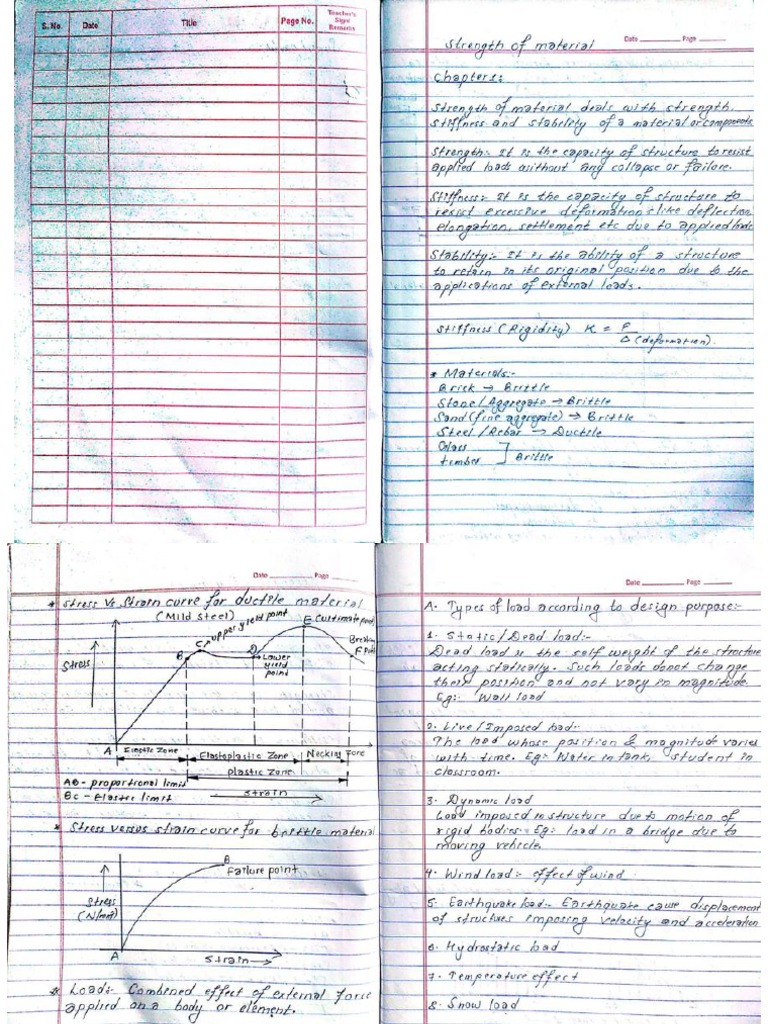 S.No.
Date
Title
Page No.
Teacher's
Sign/
Remarks
Date ______ Page ______
Strength of material
Chapter 1:
Strength of material deals with strength.
Stiffness and stability of a material or components
Strength:- It is the capacity of structure to resist
applied loads without any collapse or failure.
Stiffness:- It is the capacity of structure to
resist excessive deformations like deflection,
elongation, settlement etc due to applied loads
Stability:- It is the ability of a structure
to retain in its original position due to the
applications of external loads.
Stiffness (Rigidity) K = F / Δ (deformation).
* Materials:-
Brick → Brittle
Stone/Aggregate → Brittle
Sand (fine aggregate) → Brittle
Steel / Rebar → Ductile
Glass
timber ] Brittle
Date ______ Page ______
* Stress Vs. Strain curve for ductile material
(Mild Steel)
C upper yield point
E (ultimate point)
Breaking
F point
Stress
B
D
Lower
yield
point
A
Elastic zone
Elastoplastic Zone
Necking zone
plastic zone
AB - proportional limit
BC - Elastic limit
strain
* Stress versus strain curve for brittle material
B
Failure point
Stress
(N/mm²)
A
strain
* Load:- Combined effect of external force
applied on a body or element.
Date ______ Page ______
A. Types of load according to design purpose:-
1. Static/Dead load:-
Dead load is the self weight of the structure
acting statically. Such loads donot change
their position and not vary in magnitude.
Eg:- Wall load
2. Live/Imposed load:-
The load whose position & magnitude varies
with time. Eg: Water in tank, student in
classroom.
3. Dynamic load
Load imposed in structure due to motion of
rigid bodies. Eg: load in a bridge due to
moving vehicle.
4. Wind load:- effect of wind
5. Earthquake load:- Earthquake cause displacement
of structures imposing velocity and acceleration
6. Hydrostatic load
7. Temperature effect
8. Snow load